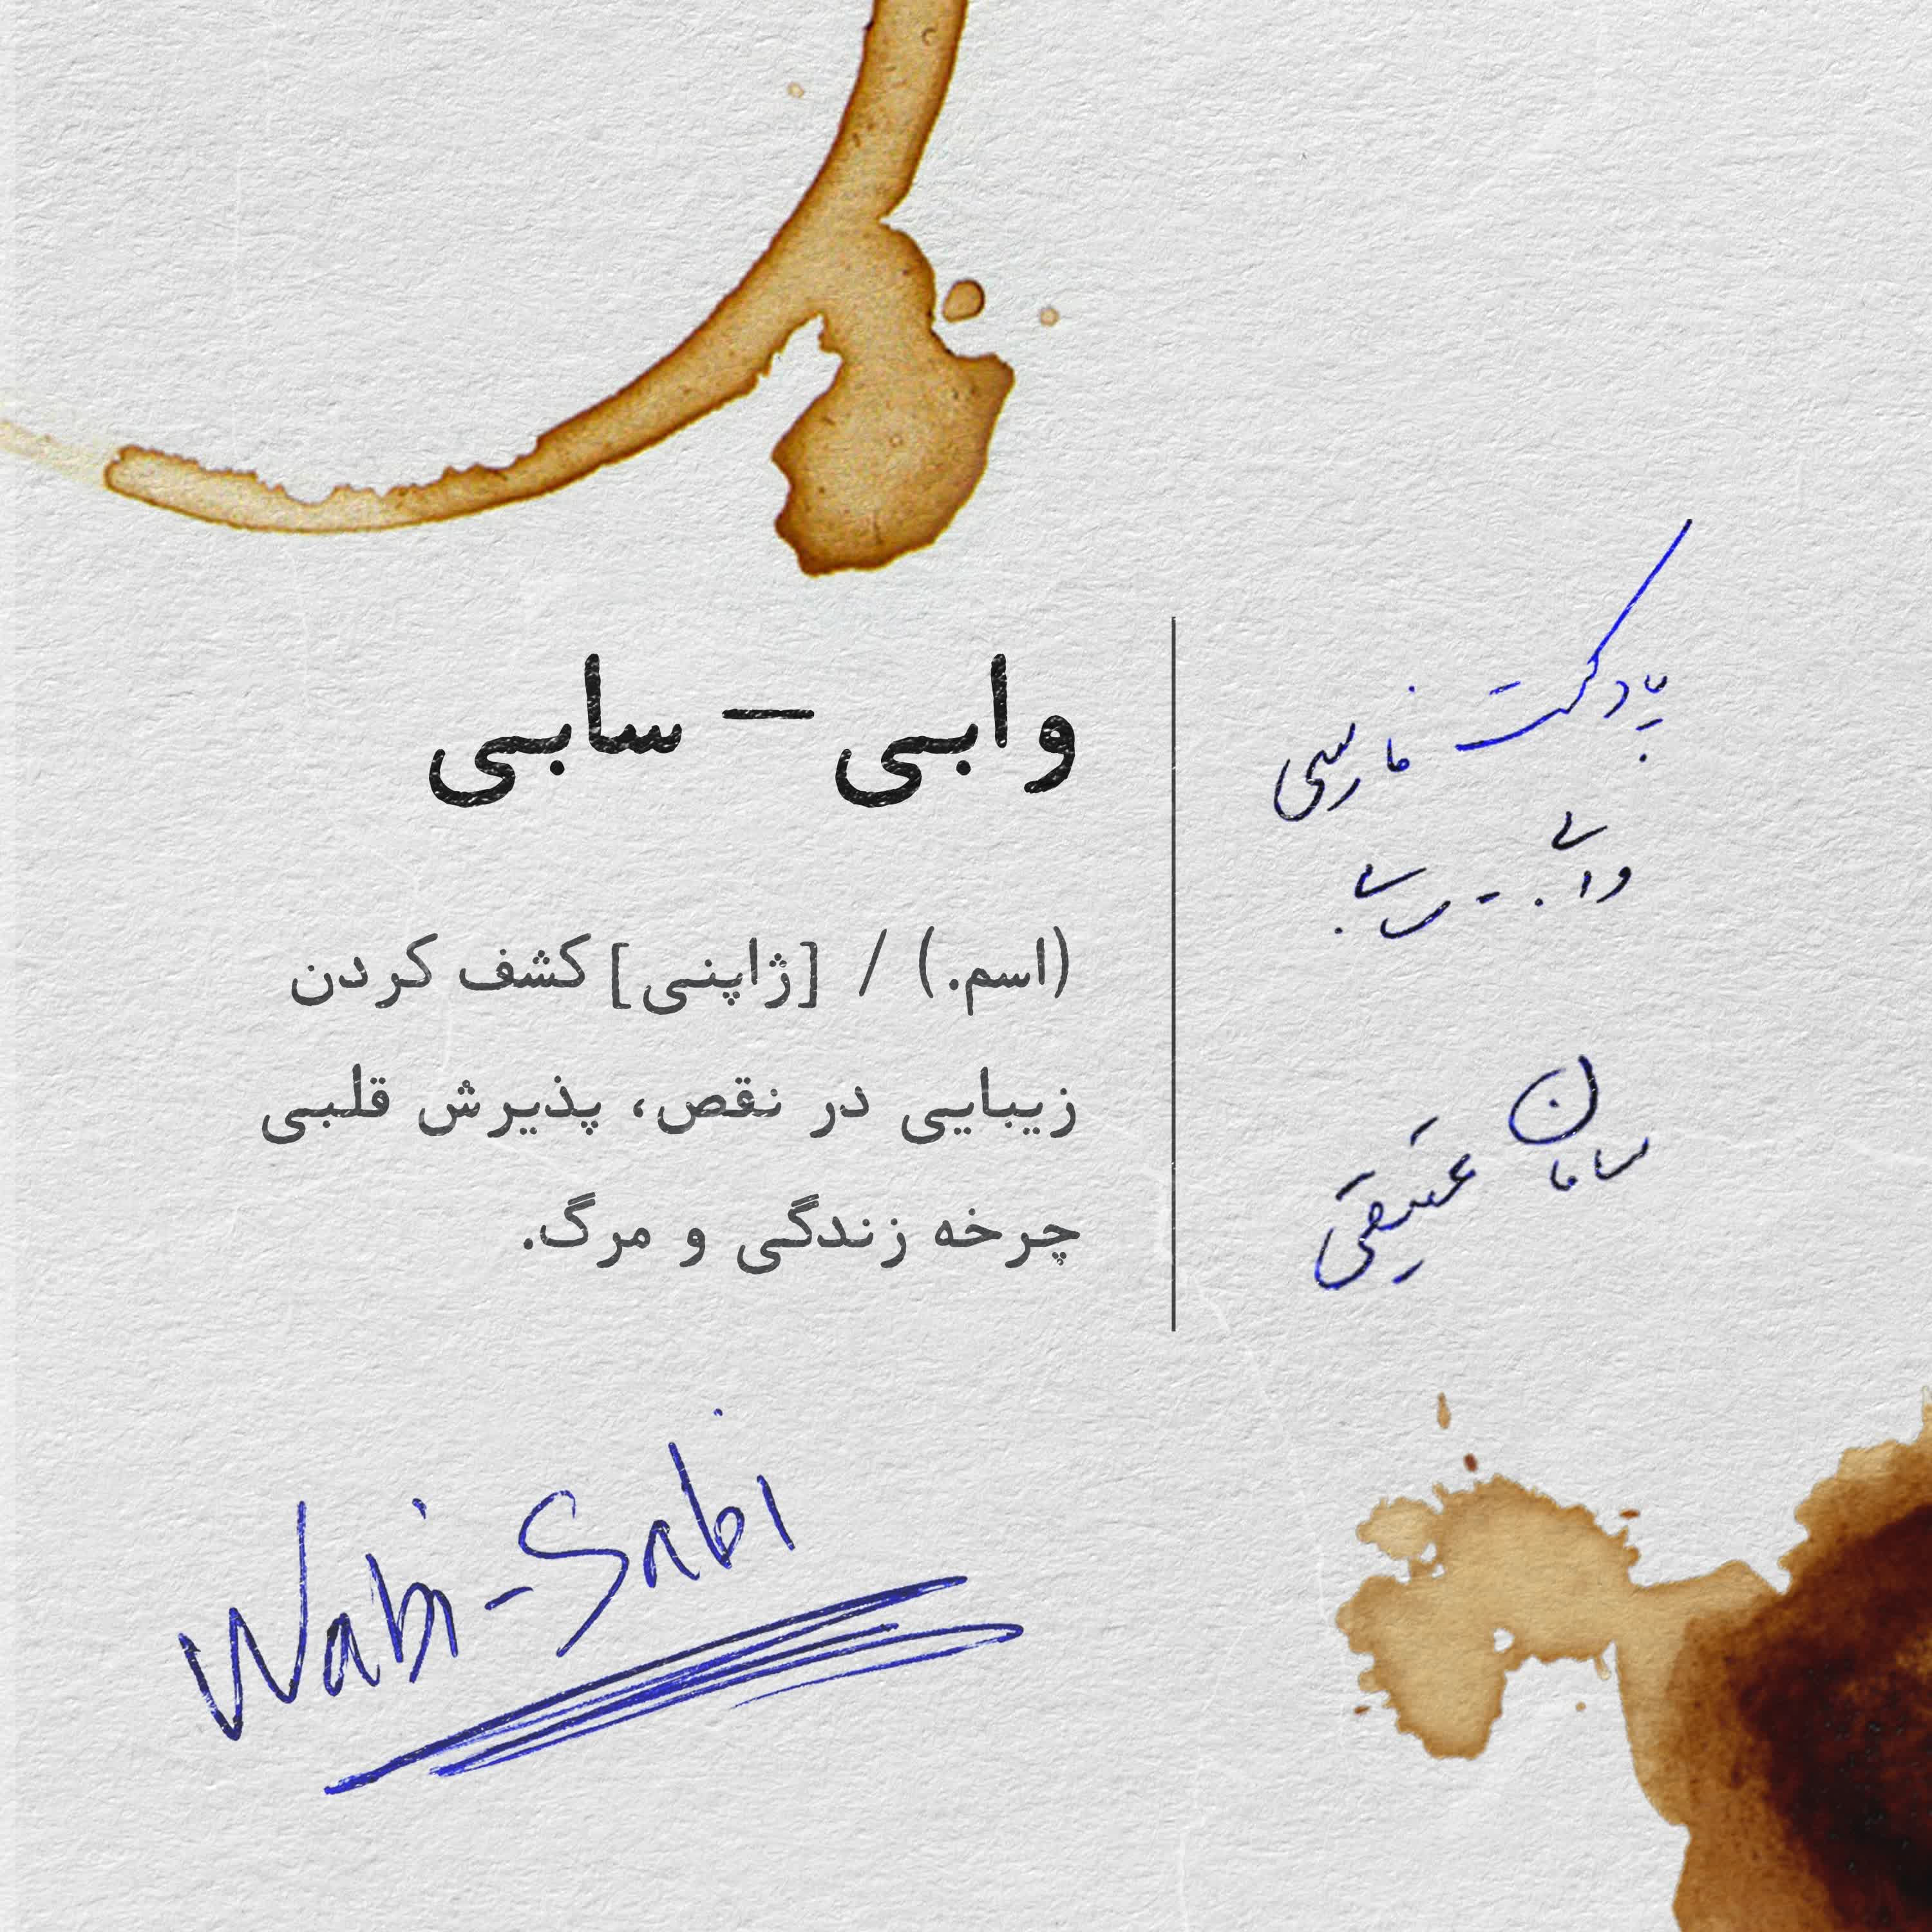 پادکست فارسی
وابی-سابی
سامان عتیقی
وابی – سابی
(اسم.) / [ژاپنی] کشف کردن
زیبایی در نقص، پذیرش قلبی
چرخه زندگی و مرگ.
Wabi-Sabi